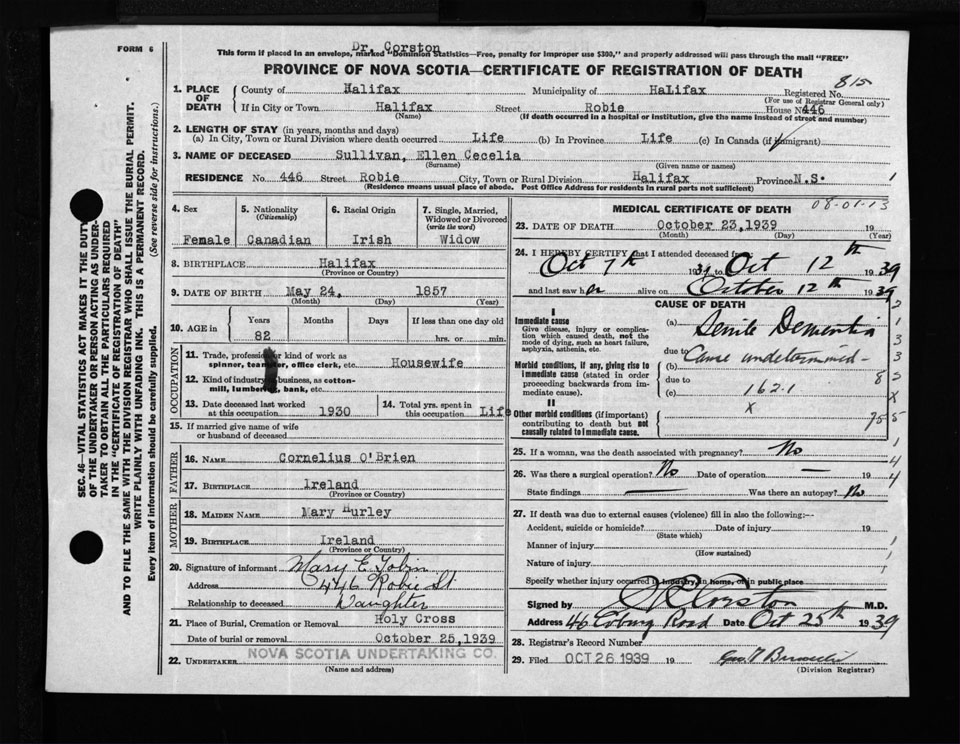 FORM 6
Dr. Corston
This form if placed in an envelope, marked "Dominion Statistics—Free, penalty for improper use $300," and properly addressed will pass through the mail "FREE"
PROVINCE OF NOVA SCOTIA—CERTIFICATE OF REGISTRATION OF DEATH
815
1. PLACE OF DEATH
County of Halifax Municipality of HaLifax Registered No.
(For use of Registrar General only)
If in City or Town Halifax Street Robie House No 446
(Name) (If death occurred in a hospital or institution, give the name instead of street and number)
2. LENGTH OF STAY (in years, months and days)
(a) In City, Town or Rural Division where death occurred Life (b) In Province Life (c) In Canada (if immigrant)
3. NAME OF DECEASED Sullivan, Ellen Cecelia
(Surname) (Given name or names)
RESIDENCE No. 446 Street Robie City, Town or Rural Division Halifax Province N.S. 1
(Residence means usual place of abode. Post Office Address for residents in rural parts not sufficient)
4. Sex
Female
5. Nationality
(Citizenship)
Canadian
6. Racial Origin
Irish
7. Single, Married, Widowed or Divorced
(write the word)
Widow
8. BIRTHPLACE Halifax
(Province or Country)
9. DATE OF BIRTH May 24, 1857
(Month) (Day) (Year)
10. AGE in
Years Months Days If less than one day old
82 hrs. or min.
OCCUPATION
11. Trade, profession or kind of work as spinner, teamster, office clerk, etc. Housewife
12. Kind of industry or business, as cotton-mill, lumbering, bank, etc.
13. Date deceased last worked at this occupation 1930
14. Total yrs. spent in this occupation Life
15. If married give name of wife or husband of deceased
FATHER
16. NAME Cornelius O'Brien
17. BIRTHPLACE Ireland
(Province or Country)
MOTHER
18. MAIDEN NAME Mary Hurley
19. BIRTHPLACE Ireland
(Province or Country)
20. Signature of informant Mary E. Tobin
Address 446 Robie St
Relationship to deceased Daughter
21. Place of Burial, Cremation or Removal Holy Cross
Date of burial or removal October 25, 1939
22. UNDERTAKER NOVA SCOTIA UNDERTAKING CO.
(Name and address)
MEDICAL CERTIFICATE OF DEATH 08-01-13
23. DATE OF DEATH October 23, 1939 19
(Month) (Day) (Year)
24. I HEREBY CERTIFY that I attended deceased from
Oct 7th 1939 to Oct 12th 1939
and last saw her alive on October 12th 1939
CAUSE OF DEATH
I
Immediate cause
Give disease, injury or complication which caused death, not the mode of dying, such as heart failure, asphyxia, asthenia, etc.
(a) Senile Dementia
due to Cause undetermined
Morbid conditions, if any, giving rise to immediate cause (stated in order proceeding backwards from immediate cause).
(b)
due to
(c) 162.1
II
Other morbid conditions (if important) contributing to death but not causally related to immediate cause.
X
25. If a woman, was the death associated with pregnancy? No
26. Was there a surgical operation? No Date of operation — 19
State findings — Was there an autopsy? No
27. If death was due to external causes (violence) fill in also the following:—
Accident, suicide or homicide? Date of injury 19
(State which)
Manner of injury
(How sustained)
Nature of injury
Specify whether injury occurred in industry, in home, or in public place
Signed by Corston M.D.
Address 46 Coburg Road Date Oct 25th 1939
28. Registrar's Record Number
29. Filed OCT 26 1939 19
(Division Registrar)
SEC. 46—VITAL STATISTICS ACT MAKES IT THE DUTY OF THE UNDERTAKER OR PERSON ACTING AS UNDERTAKER TO OBTAIN ALL THE PARTICULARS REQUIRED IN THE "CERTIFICATE OF REGISTRATION OF DEATH" AND TO FILE THE SAME WITH THE DIVISION REGISTRAR WHO SHALL ISSUE THE BURIAL PERMIT.
WRITE PLAINLY WITH UNFADING INK. THIS IS A PERMANENT RECORD.
Every item of information should be carefully supplied. (See reverse side for instructions.)